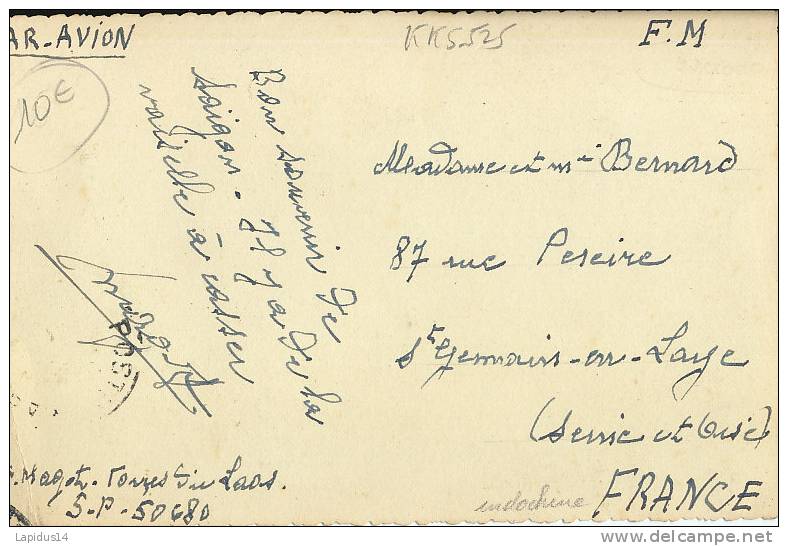 AR-AVION
KK5525
F.M
10€
Bon souvenir de
Saigon. Il y a de la
vaisselle à casser
Madame et mr Bernard
87 rue Pereire
St Germain-en-Laye
(Seine et Oise)
FRANCE
indochine
Magot. Forces du Laos.
S-P-50680
POST
Lapidus14
delcampe.net